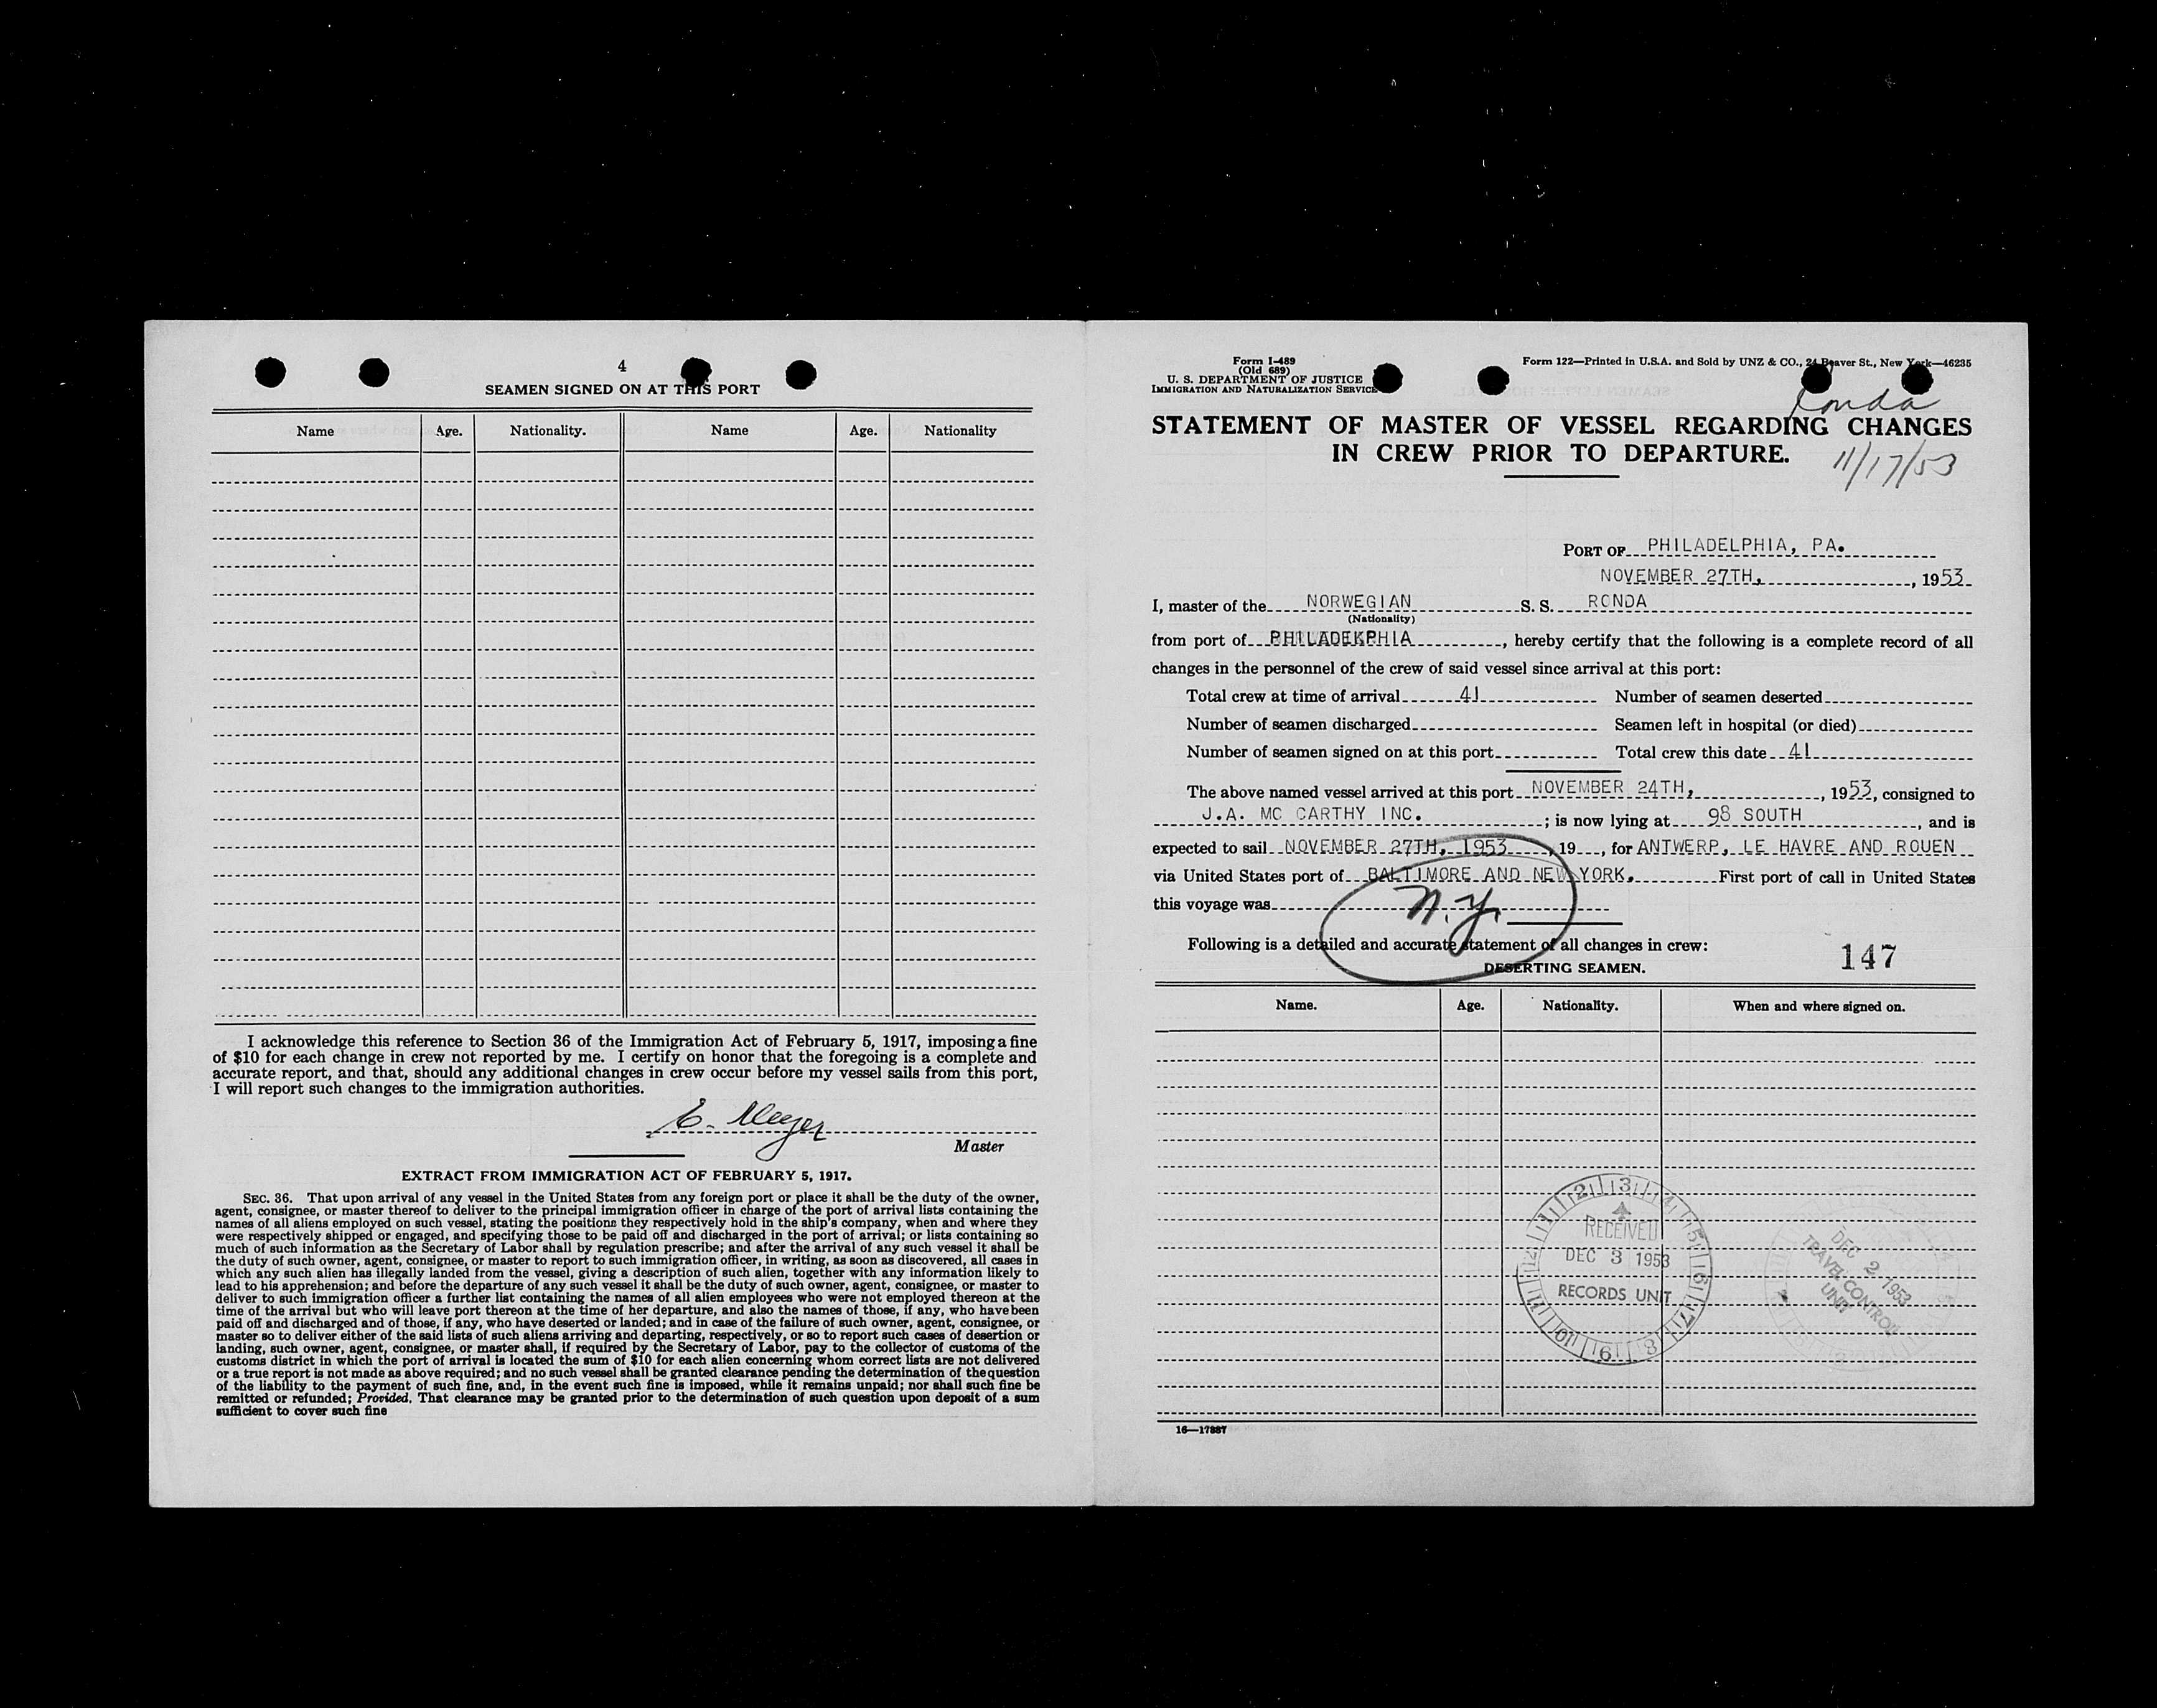 4
SEAMEN SIGNED ON AT THIS PORT
Name Age. Nationality. Name Age. Nationality
I acknowledge this reference to Section 36 of the Immigration Act of February 5, 1917, imposing a fine
of $10 for each change in crew not reported by me. I certify on honor that the foregoing is a complete and
accurate report, and that, should any additional changes in crew occur before my vessel sails from this port,
I will report such changes to the immigration authorities.
E. Meyer
Master
EXTRACT FROM IMMIGRATION ACT OF FEBRUARY 5, 1917.
SEC. 36. That upon arrival of any vessel in the United States from any foreign port or place it shall be the duty of the owner,
agent, consignee, or master thereof to deliver to the principal immigration officer in charge of the port of arrival lists containing the
names of all aliens employed on such vessel, stating the positions they respectively hold in the ship's company, when and where they
were respectively shipped or engaged, and specifying those to be paid off and discharged in the port of arrival; or lists containing so
much of such information as the Secretary of Labor shall by regulation prescribe; and after the arrival of any such vessel it shall be
the duty of such owner, agent, consignee, or master to report to such immigration officer, in writing, as soon as discovered, all cases in
which any such alien has illegally landed from the vessel, giving a description of such alien, together with any information likely to
lead to his apprehension; and before the departure of any such vessel it shall be the duty of such owner, agent, consignee, or master to
deliver to such immigration officer a further list containing the names of all alien employees who were not employed thereon at the
time of the arrival but who will leave port thereon at the time of her departure, and also the names of those, if any, who have been
paid off and discharged and of those, if any, who have deserted or landed; and in case of the failure of such owner, agent, consignee, or
master so to deliver either of the said lists of such aliens arriving and departing, respectively, or so to report such cases of desertion or
landing, such owner, agent, consignee, or master shall, if required by the Secretary of Labor, pay to the collector of customs of the
customs district in which the port of arrival is located the sum of $10 for each alien concerning whom correct lists are not delivered
or a true report is not made as above required; and no such vessel shall be granted clearance pending the determination of the question
of the liability to the payment of such fine, and, in the event such fine is imposed, while it remains unpaid; nor shall such fine be
remitted or refunded; Provided, That clearance may be granted prior to the determination of such question upon deposit of a sum
sufficient to cover such fine
Form I-489
(Old 689)
U. S. DEPARTMENT OF JUSTICE
IMMIGRATION AND NATURALIZATION SERVICE
Form 122—Printed in U.S.A. and Sold by UNZ & CO., 24 Beaver St., New York—46235
Ronda
STATEMENT OF MASTER OF VESSEL REGARDING CHANGES
IN CREW PRIOR TO DEPARTURE.
11/17/53
PORT OF PHILADELPHIA, PA.
NOVEMBER 27TH, , 1953
I, master of the NORWEGIAN S. S. RONDA
(Nationality)
from port of PHILADEKPHIA , hereby certify that the following is a complete record of all
changes in the personnel of the crew of said vessel since arrival at this port:
Total crew at time of arrival 41 Number of seamen deserted
Number of seamen discharged Seamen left in hospital (or died)
Number of seamen signed on at this port Total crew this date 41
The above named vessel arrived at this port NOVEMBER 24TH, , 1953, consigned to
J.A. MC CARTHY INC. ; is now lying at 98 SOUTH , and is
expected to sail NOVEMBER 27TH, 1953 , 19 , for ANTWERP, LE HAVRE AND ROUEN
via United States port of BALTIMORE AND NEW YORK. First port of call in United States
this voyage was N.Y.
Following is a detailed and accurate statement of all changes in crew:
147
DESERTING SEAMEN.
Name. Age. Nationality. When and where signed on.
12 1 2 3 4 5 6 7 8 9 10 11
RECEIVED
DEC 3 1953
RECORDS UNIT
DEC 2 1953
TRAVEL CONTROL
UNIT
16—17887